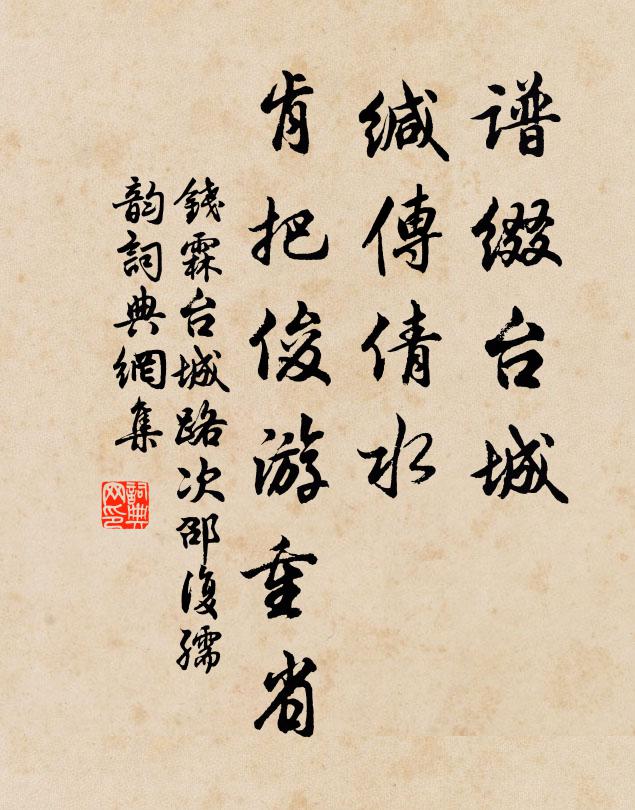 谱缀台城
缄傳倩水
肯把俊游重省
錢霖台城路次邵復孺
韵詞典網集
詞典网印